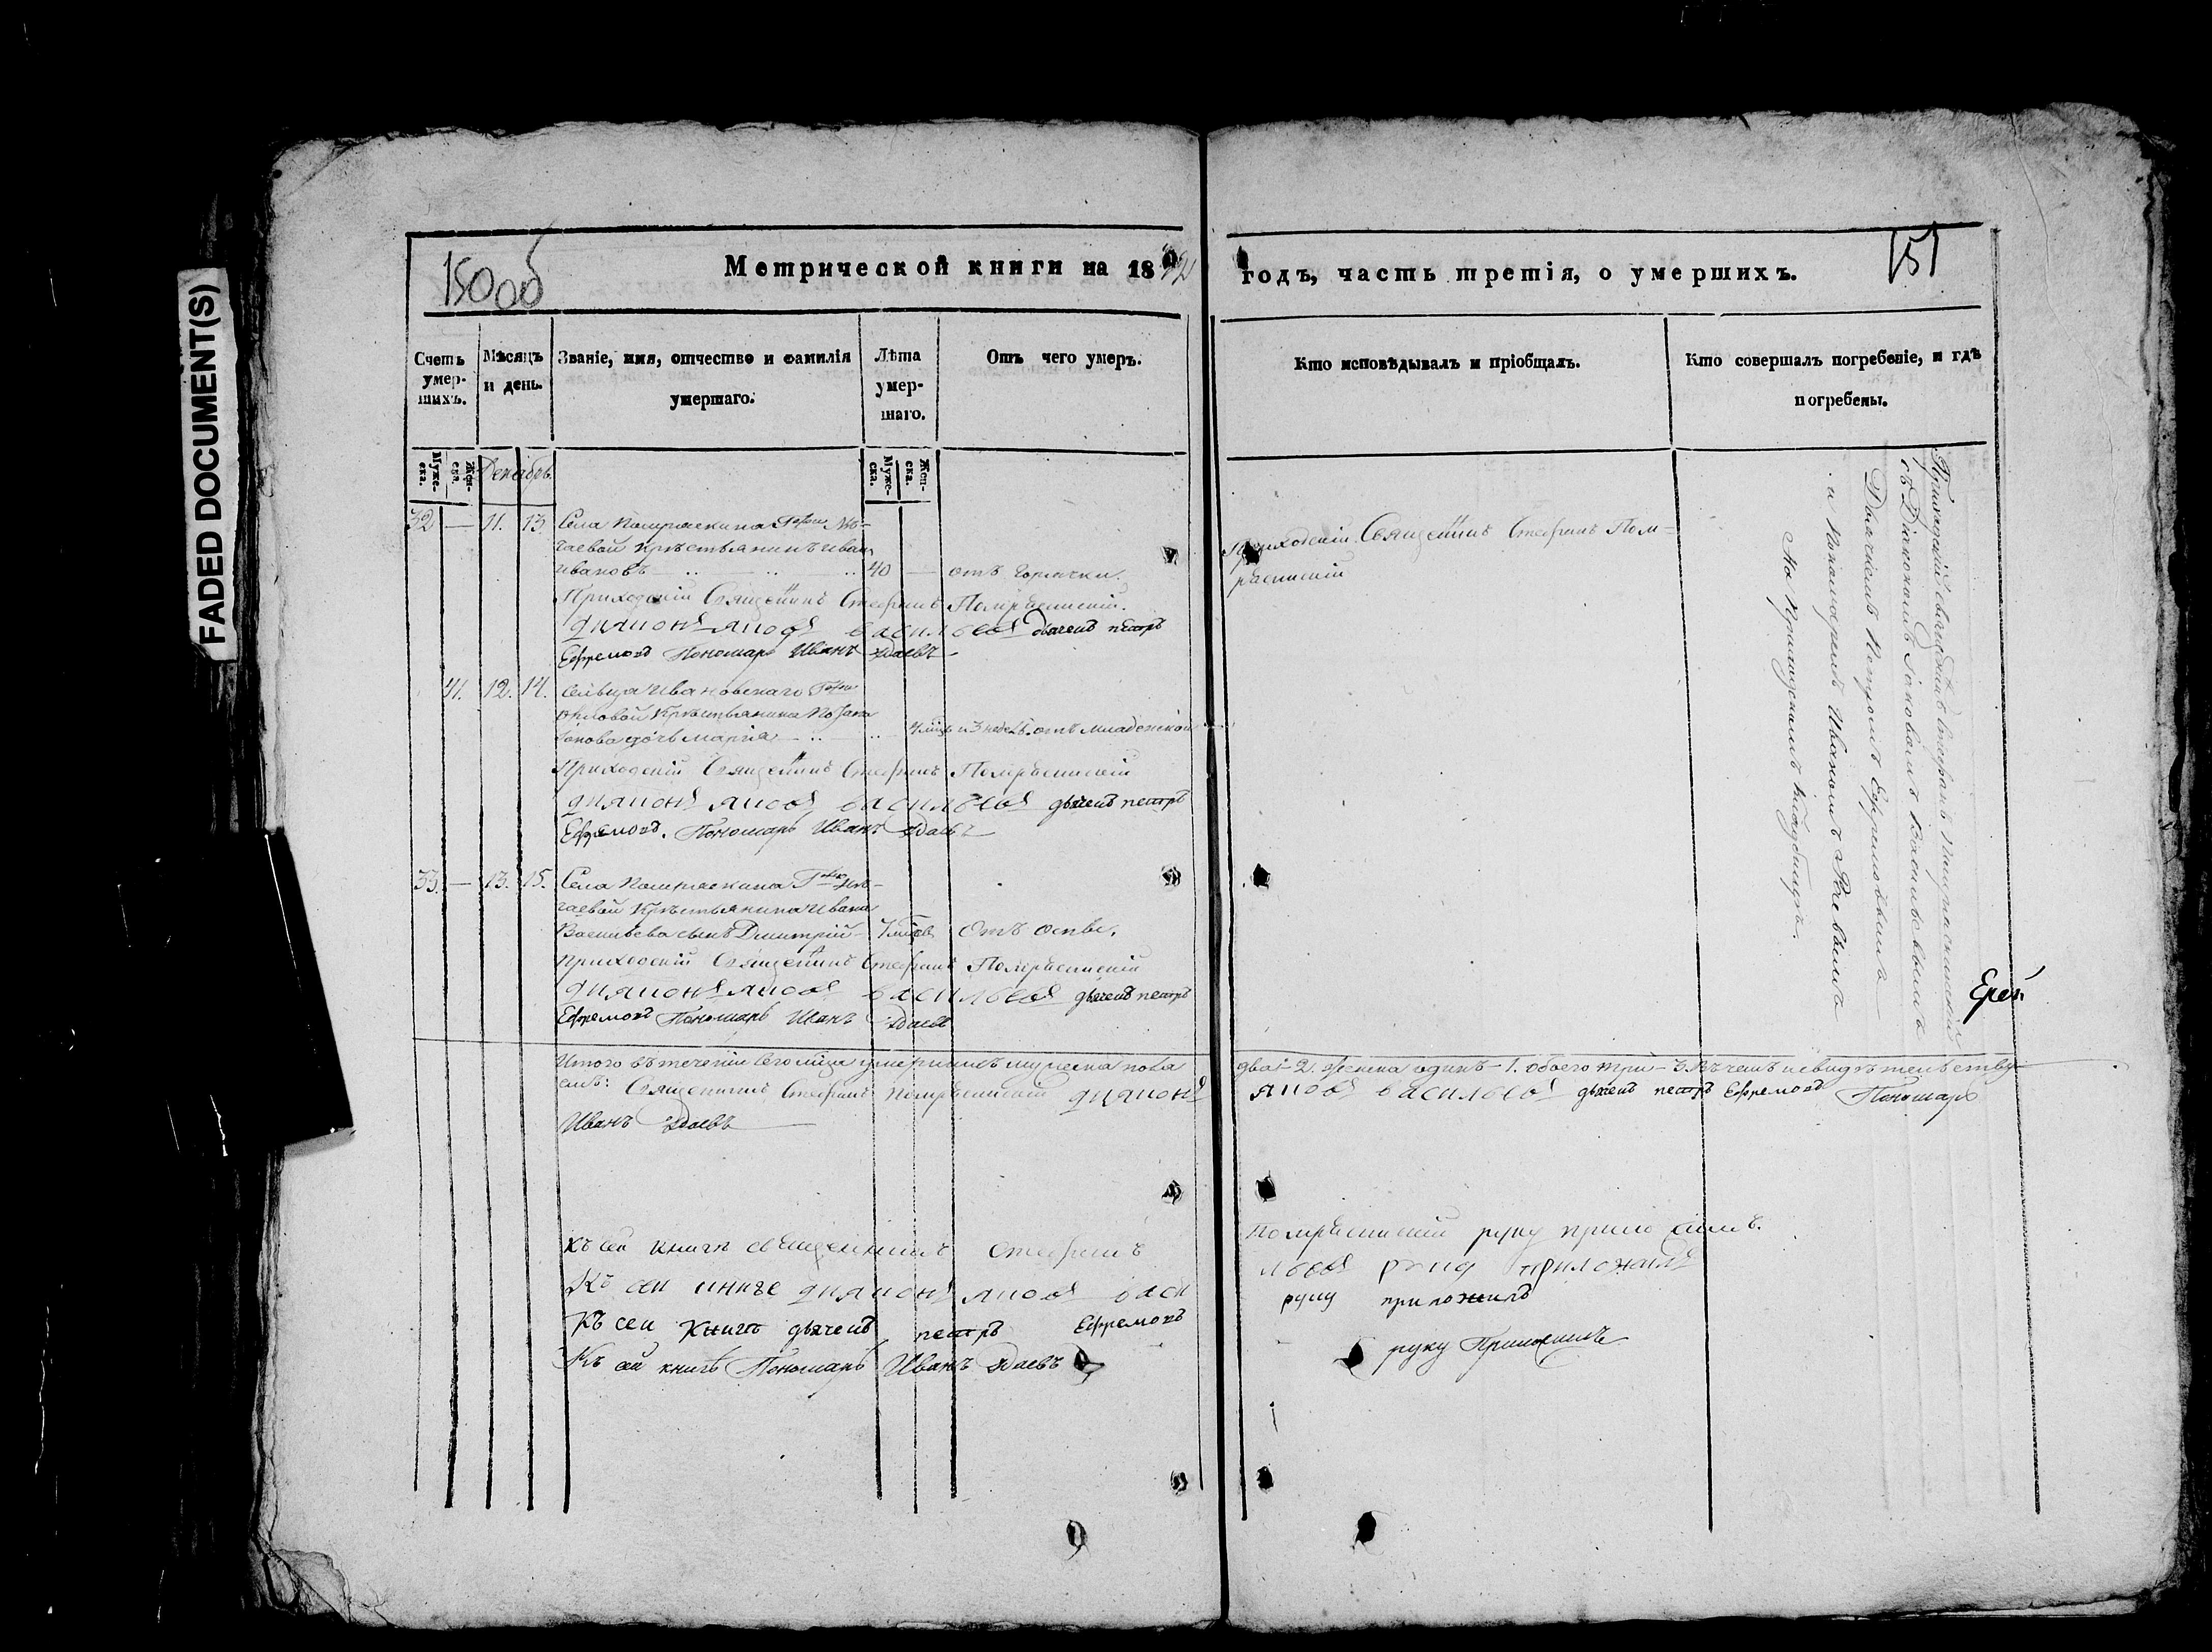 FADED DOCUMENT(S)
150 об
Метрической книги на 18
годъ, часть третія, о умершихъ.
151
Счетъ умершихъ.
Мѣсяцъ и день.
Званіе, имя, отчество и фамилія умершаго.
Лѣта умершаго.
Отъ чего умеръ.
Кто исповѣдывалъ и пріобщалъ.
Кто совершалъ погребеніе, и гдѣ погребены.
Мужеска.
Женска.
Декабрь
Мужеска.
Женска.
32 — 11. 13. Села
чаевой крѣстьянинъ Иванъ
Ивановъ 40 — отъ горячки.
Приходскій Священникъ Стефанъ
Приходскій Священникъ Стефанъ
диаконъ Яковъ Васильевъ дьячекъ петръ
Ефремовъ Пономарь Иванъ
41. 12. 14. сельца Ивановскаго
крѣстьянина
дочь Марія 4 мцъ и 3 недѣл. отъ младенской
Приходскій Священникъ Стефанъ
диаконъ Яковъ Васильевъ дьячекъ петръ
Ефремовъ. Пономарь Иванъ
33. — 13. 15. Села
чаевой Крѣстьянина Ивана
Васильева сынъ Дмитрій Отъ оспы.
Приходскій Священникъ Стефанъ
диаконъ Яковъ Васильевъ дьячекъ петръ
Ефремовъ Пономарь Иванъ
Приходскій священникъ Стефанъ
съ Діакономъ Іаковомъ Васильевымъ
Дьячкомъ Петромъ Ефремовымъ
и Пономаремъ Иваномъ
На кладбищѣ.
Ерей
Итого въ теченіи сего мца умершихъ мужеска пола
двое — 2. женска одинъ — 1. обоего три — 3. Въ чемъ и свидѣтельству
емъ: Священникъ Стефанъ диаконъ
Яковъ Васильевъ дьячекъ петръ Ефремовъ Пономарь
Иванъ
Къ сей книгѣ священникъ Стефанъ
руку приложилъ.
Къ сеи книге диаконъ Яковъ Васи
льевъ руку приложилъ
Къ сеи книгѣ дьячекъ петръ Ефремовъ
руку приложилъ
Къ сей книгѣ Пономарь Иванъ
руку Приложилъ